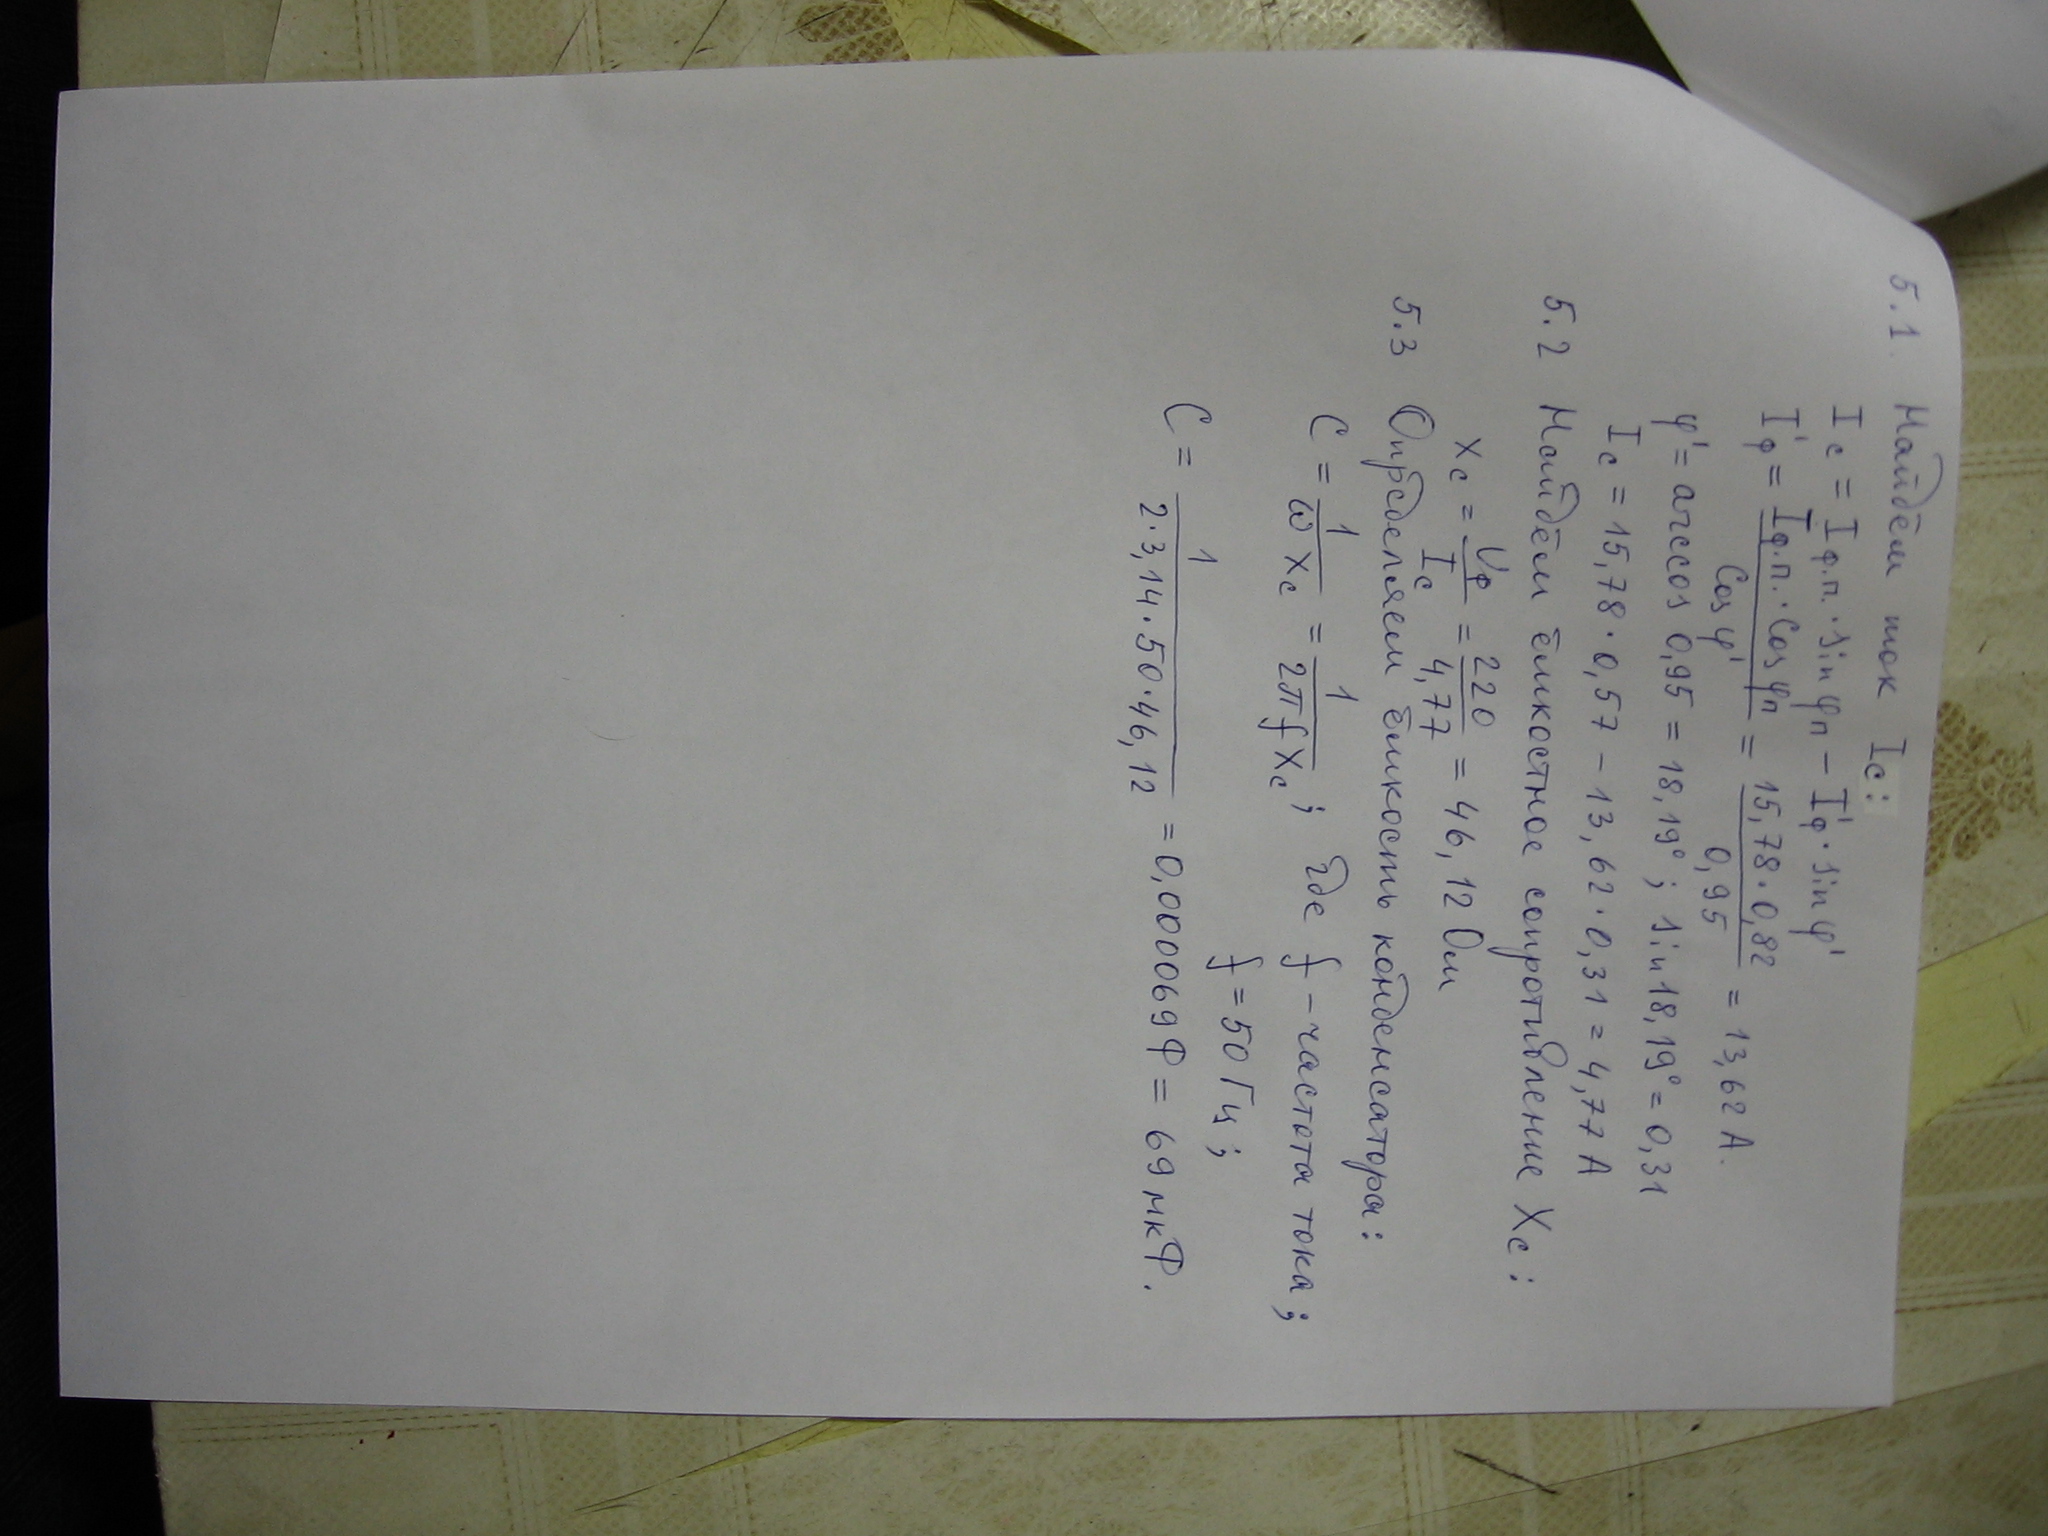 5.1. Найдём ток Ic:
Ic = Iф.п. · sin φп − I'ф · sin φ'
I'ф = Iф.п. · Cos φп / Cos φ' = 15,78 · 0,82 / 0,95 = 13,62 А.
φ' = arccos 0,95 = 18,19°; sin 18,19° = 0,31
Ic = 15,78 · 0,57 − 13,62 · 0,31 = 4,77 А
5.2 Найдём ёмкостное сопротивление Xc:
Xc = Uф / Ic = 220 / 4,77 = 46,12 Ом
5.3 Определяем ёмкость конденсатора:
C = 1 / ω Xc = 1 / 2π f Xc; где f – частота тока;
f = 50 Гц;
C = 1 / 2·3,14·50·46,12 = 0,000069 Ф = 69 мкФ.